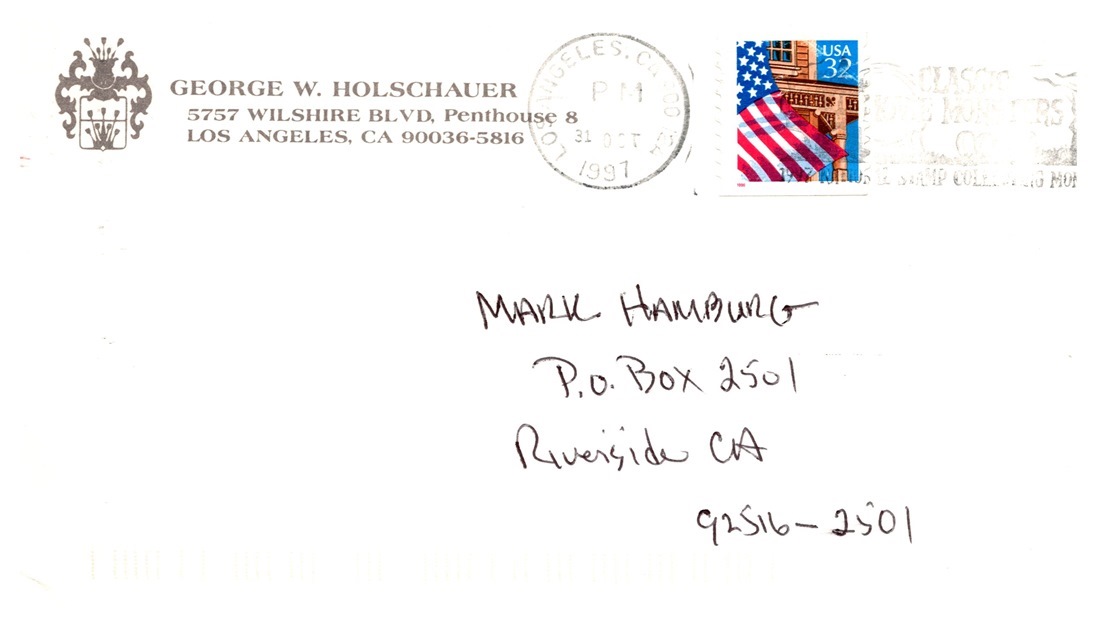 GEORGE W. HOLSCHAUER
5757 WILSHIRE BLVD, Penthouse 8
LOS ANGELES, CA 90036-5816
LOS ANGELES, CA
PM
31 OCT
1997
USA
32
CLASSIC
MOVIE MONSTERS
STAMP COLLECTING
MARK HAMBURG
P.O. Box 2501
Riverside CA
92516-2501